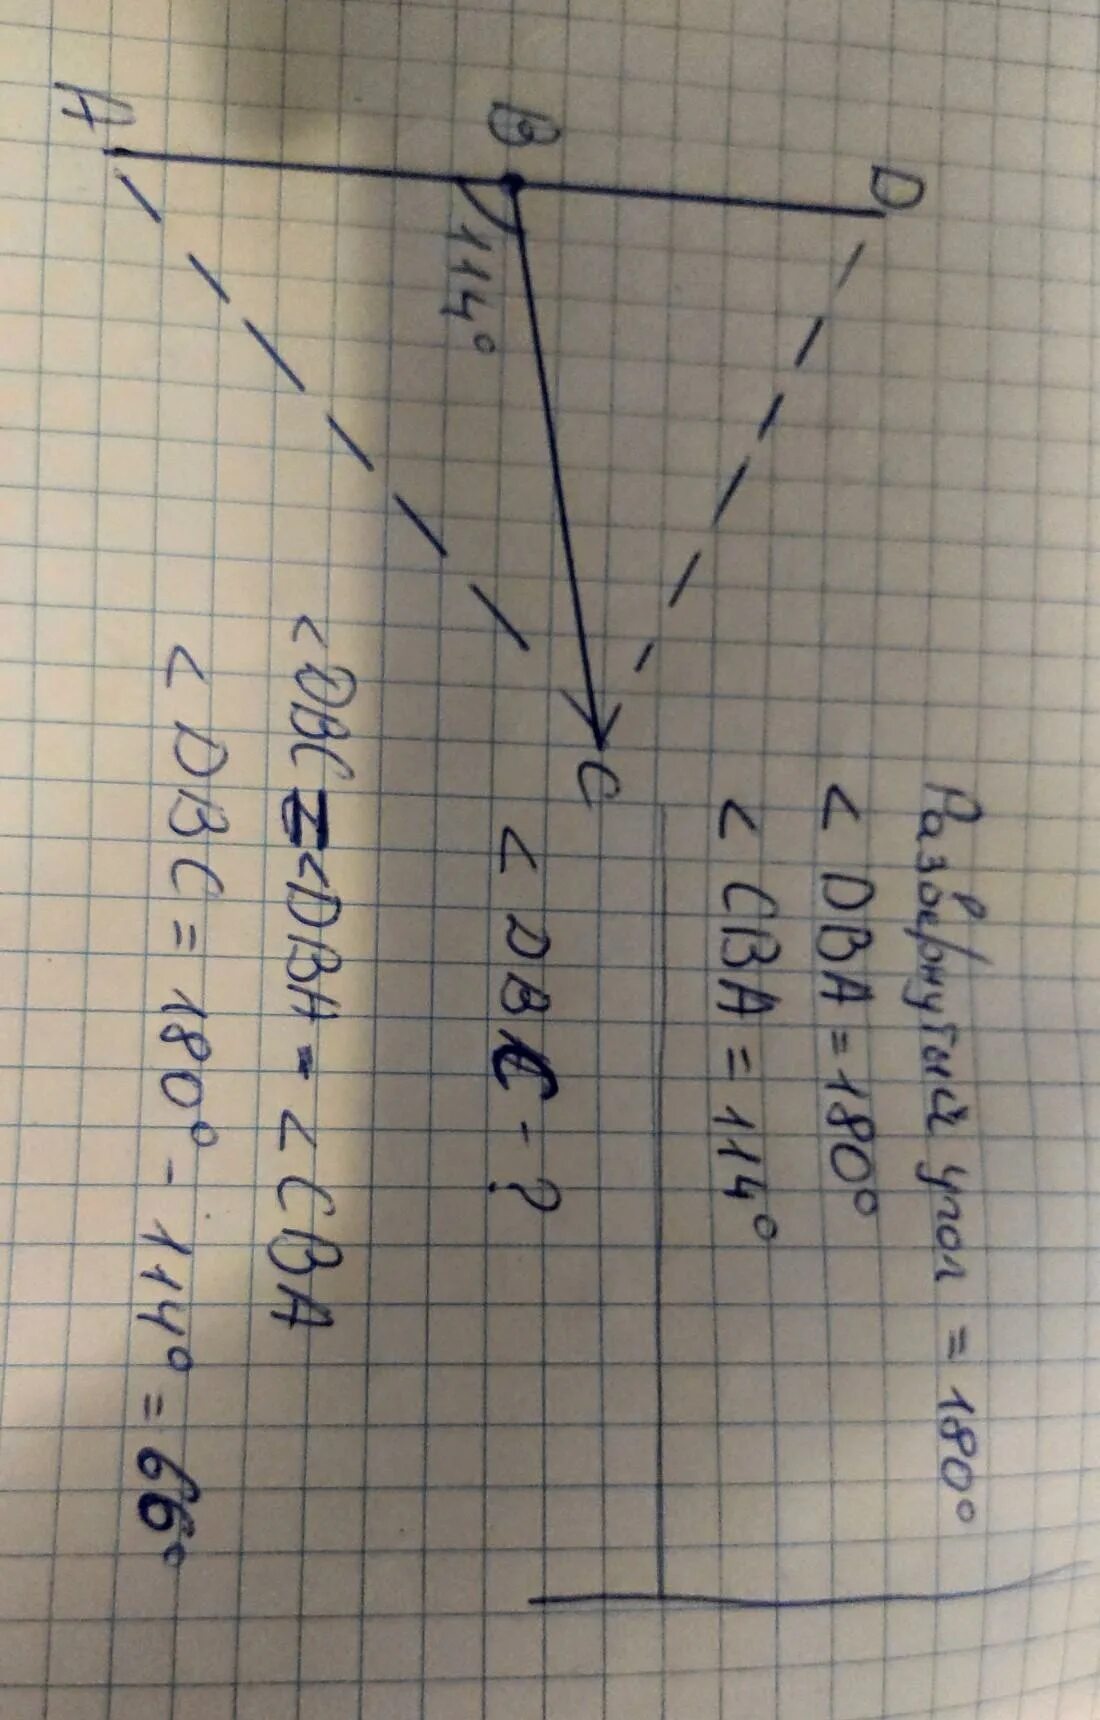 A
B
D
114°
C
Развернутый угол = 180°
< DBA = 180°
< CBA = 114°
< DBC - ?
< DBC = < DBA - < CBA
< DBC = 180° - 114° = 66°